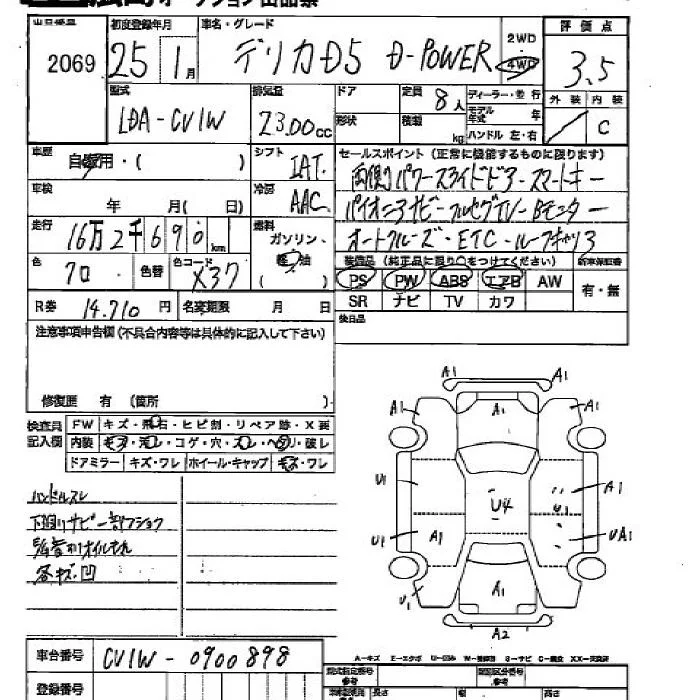 オークション出品票
出品番号 初度登録年月 車名・グレード 評価点
2069 25 1月 デリカD5 D-POWER 2WD 4WD 3.5
型式 排気量 ドア 定員 8人 ディーラー・並行 外装 内装
LDA-CV1W 2300cc 形状 積載 kg モデル年式 年 ハンドル 左・右 C
車歴 自家用・( ) シフト IAT. セールスポイント (正常に機能するものに限ります)
車検 年 月( 日) 冷房 AAC 両側パワースライドビアースマートキー
走行 16万2千690km 燃料 ガソリン、軽油 ( ) パイオニアナビフルセグTV-Bモニター
オートクルーズ・ETC・ルーフキャリア
色 クロ 色替 色コード X37 装備品 (純正品に限り○をつけてください) 新車保証書
PS PW ABS エアB AW 有・無
SR ナビ TV カワ
R券 14,710円 名変期限 月 日 後日品
注意事項申告欄(不具合内容等は具体的に記入して下さい)
修復歴 有 (箇所 )
検査員記入欄 FW キズ・飛石・ヒビ割・リペア跡・X要
内装 キズ・汚レ・コゲ・穴・スレ・ヘタリ・破レ
ドアミラー キズ・ワレ ホイール・キャップ キズ・ワレ
ハンドルスレ
下廻りサビ一部フショク
各キズ凹
A1
A1 A1 A1
U1 U4 A1
U1
U1 A1 UA1
U1 A1
A2
A-キズ E-エクボ U-凹み W-補修跡 S-サビ C-腐食 XX-交換済
車台番号 CV1W-0900898
登録番号
型式指定番号 参考 類別区分番号 参考
長さ 幅 高さ